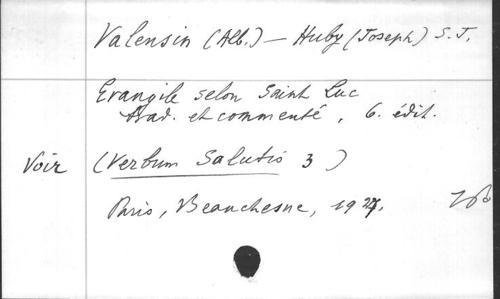 Valensin (Alb.) — Huby (Joseph) S.J.
Evangile selon Saint Luc
trad. et commenté, 6. édit.
Voir (Verbum Salutis 3)
Paris, Beauchesne, 1927.